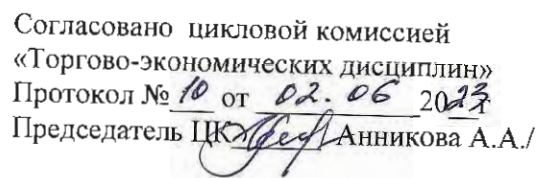 Согласовано цикловой комиссией
«Торгово-экономических дисциплин»
Протокол № 10 от 02.06 2023г
Председатель ЦК Анникова А.А./